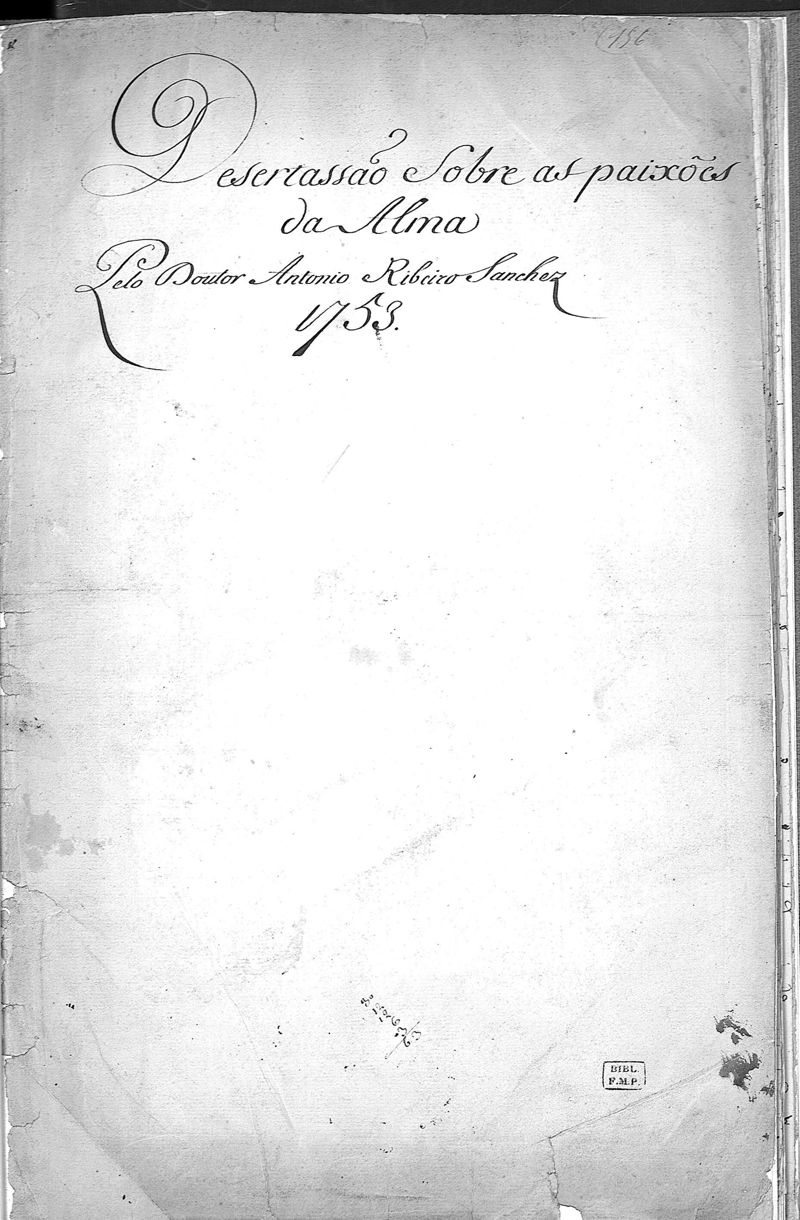 (196
Desertassão Sobre as paixões
da Alma
Pelo Doutor Antonio Ribeiro Sanchez
1753.
BIBL.
F.M.P.